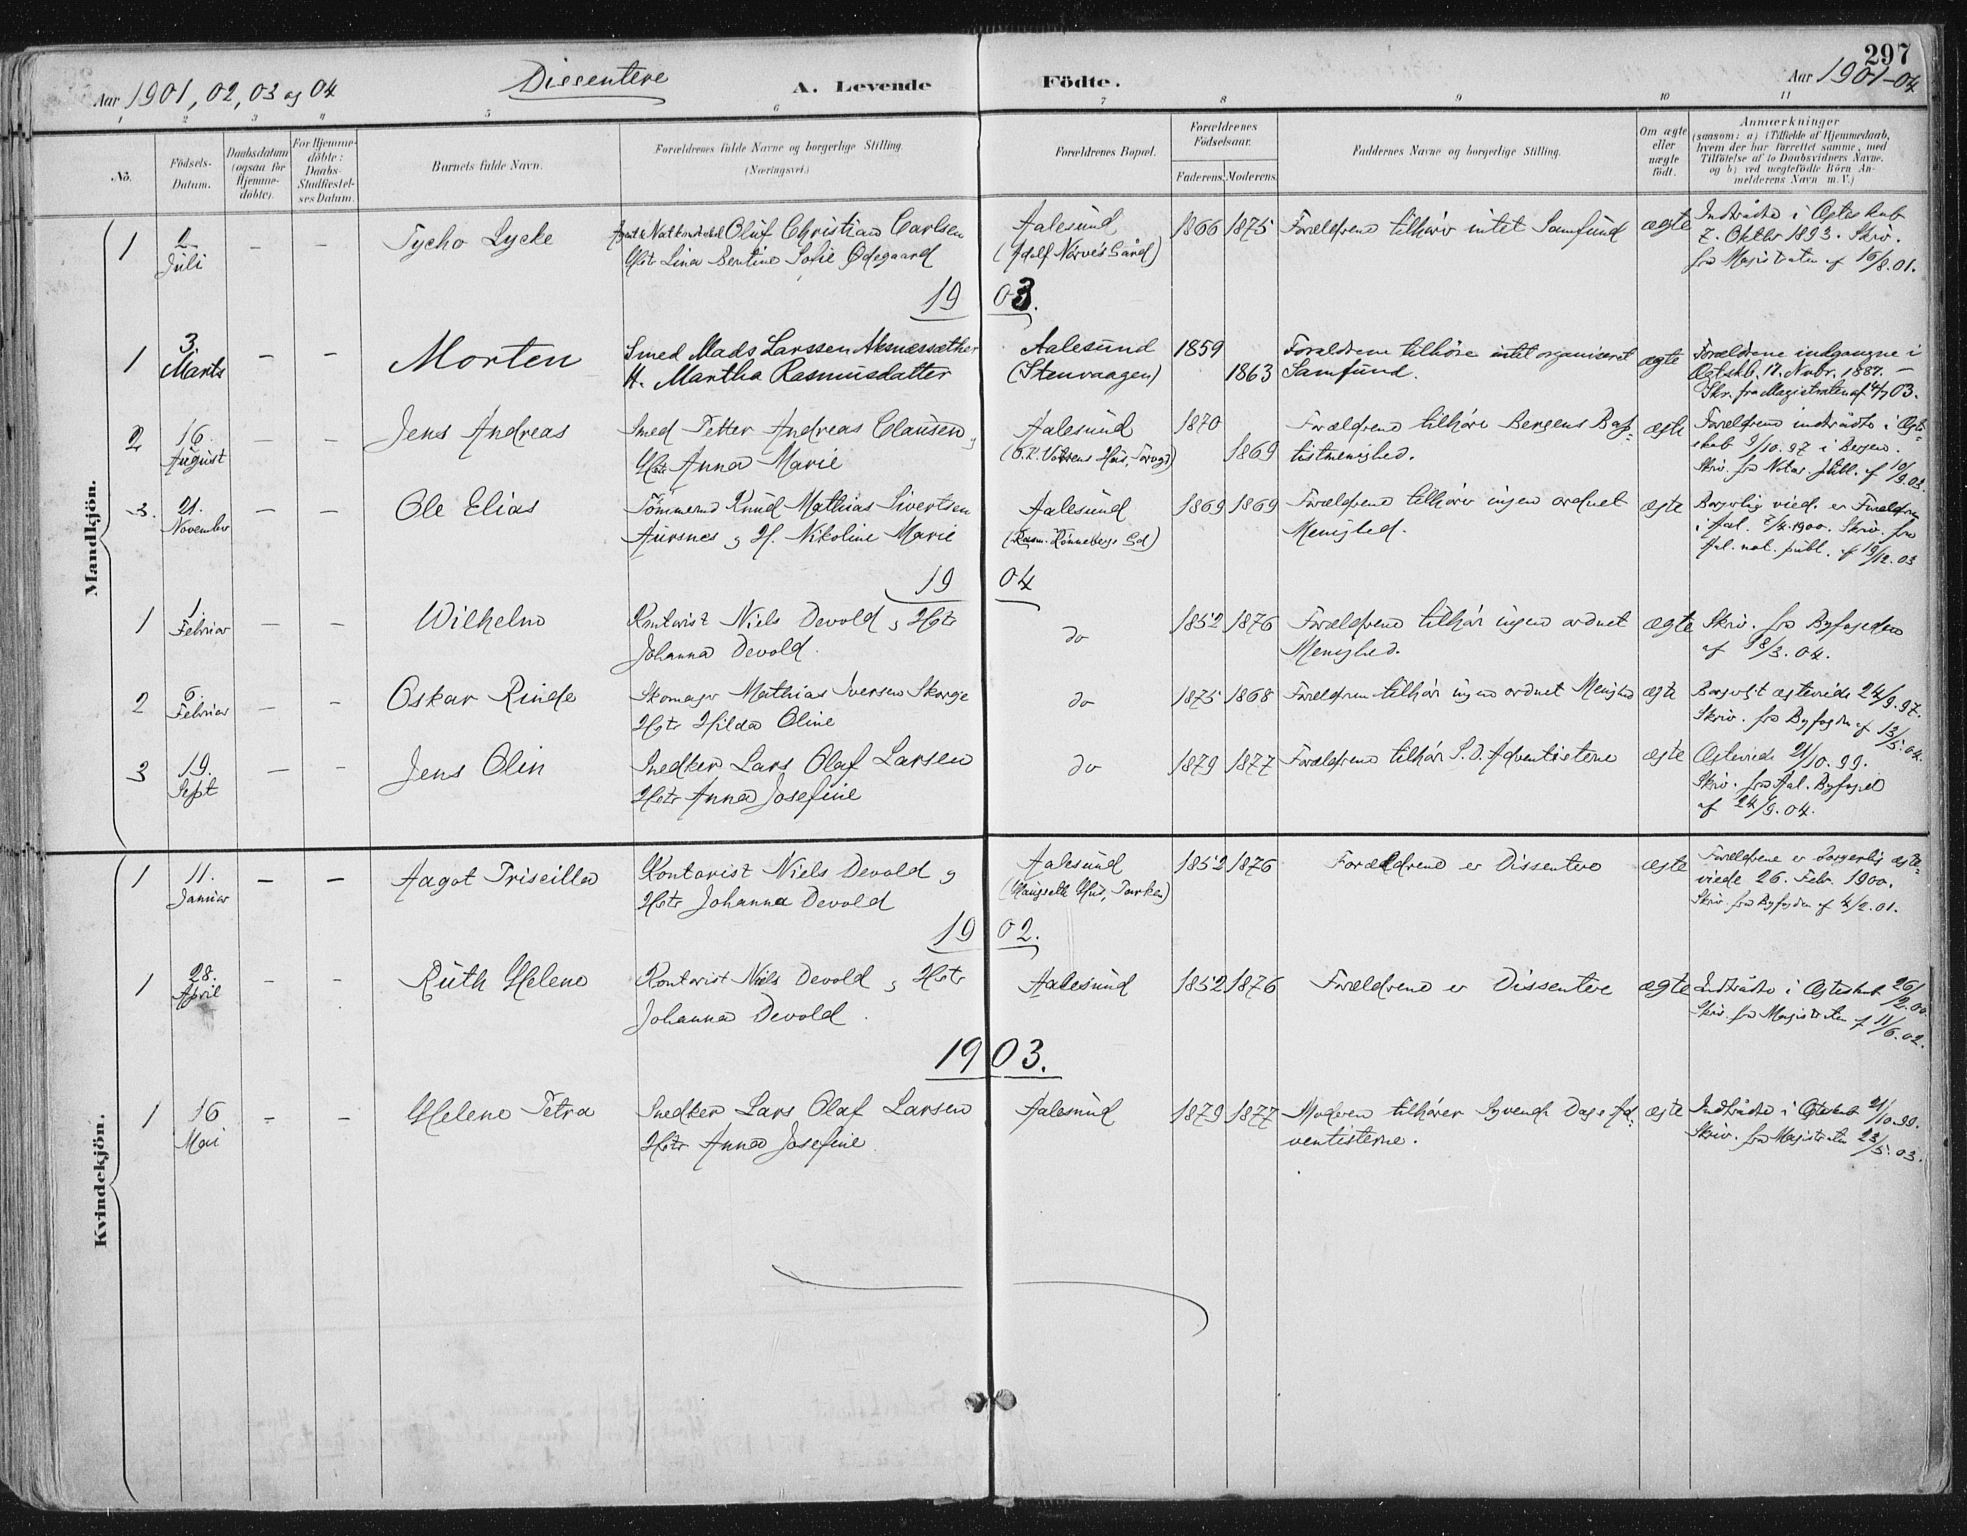 297
Aar 1901, 02, 03 og 04
Dissentere
A. Levende
Födte.
Aar 1901-04
1 2 3 4 5 6 7 8 9 10 11
No.
Födsels-
Datum.
Daabsdatum
(ogsaa for
Hjemme-
döbte).
For Hjemme-
döbte:
Daabs-
Stadfæstel-
ses Datum.
Barnets fulde Navn.
Forældrenes fulde Navne og borgerlige Stilling.
(Næringsvei.)
Forældrenes Bopæl.
Forældrenes
Födselsaar.
Faderens. Moderens.
Faddernes Navne og borgerlige Stilling.
Om ægte
eller
uægte
födt.
Anmærkninger
(saasom: a) i Tilfælde af Hjemmedaab,
hvem der har forrettet samme, med
Tilföielse af to Daabsvidners Navne,
og b) ved uægtefödte Börn An-
melderens Navn m. V.)
Mandkjön.
1 2 Juli – – Tycho Lycke
Oluf Christian Carlsen
Hstr Lina Bentine Sofie Ödegaard
Aalesund
(Adolf Norves Gård)
1866 1875
Forældrene tilhører intet Samfund
ægte
Indtrådte i Ægteskab
7. Oktbr 1893. Skriv.
fra Magistraten af 16/8.01.
1903.
1 3. Marts – – Morten
Smed Mads Larssen Aknæssæther
H. Martha Rasmusdatter
Aalesund
(Stenvaagen)
1859 1863
Forældrene tilhöre intet organiseret
Samfund.
ægte
Forældrene indgangne i
Ægtskb. 17. Nvbr. 1887. –
Skr. fra Magistraten af 4/7 03.
2 16. August – – Jens Andreas
Smed Petter Andreas Clausen og
Hstr Anna Marie
Aalesund
1870 1869
Forældrene tilhöre Bergens Bap-
tistmenighed.
ægte
Forældrene indtrådte i Ægte-
skab 9/10.97 i Bergen.
Skriv. fra Notar. publ. af 10/9.03.
3. 21. November – – Ole Elias
Tömmermd Knud Mathias Sivertsen
Aursnes og H. Nikoline Marie
Aalesund
(Rasm. Rönnebergs Gd)
1869 1869
Forældrene tilhører ingen ordnet
Menighed.
ægte
Borgerlig viede er Forældrene
i Aal. 7/4.1900. Skriv. fra
Aal. not. publ. af 19/12.03
1904
1 1 Februar – – Wilhelm
Kontorist Niels Devold og Hstr
Johanna Devold.
do
1852 1876
Forældrene tilhør ingen ordnet
Menighed.
ægte
Skriv. fra Byfogden
af 18/3.04.
2 6. Februar – – Oskar Rinde
Skomager Mathias Iversen Skorge
Hstr Hilda Oline
do
1875 1868
Forældren tilhør ingen ordnet Menighed
ægte
Borgerligt ægteviede 24/9.97.
Skriv. fra Byfogden af 13/5.04.
3 19. Sept – – Jens Olin
Snedker Lars Olaf Larsen
Hstr Anna Josefine
do
1879 1877
Forældrene tilhør S. D. Adventisterne
ægte
Ægteviede 21/10.99.
Skriv. fra Aal. Byfoged
af 24/9.04.
Kvindekjön.
1 11. Januar – – Aagot Priscilla
Kontorist Niels Devold og
Hstr Johanna Devold
Aalesund
1852 1876
Forældrene er Dissentere
ægte
Forældrene er borgerlig ægte-
viede 26. Febr. 1900.
Skriv. fra Byfogden af 4/2.01.
1902.
1 28. April – – Ruth Helene
Kontorist Niels Devold og Hstr
Johanna Devold.
Aalesund
1852 1876
Forældrene er Dissentere
ægte
Indtrådte i Ægteskab 26/2.00.
Skriv. fra Magistraten af 11/6.02.
1903.
1 16 Mai – – Helene Petra
Snedker Lars Olaf Larsen
Hstr Anna Josefine.
Aalesund
1879 1877
Moderen tilhører Syvende Dags Ad-
ventisterne.
ægte
Indtrådte i Ægteskab 21/10.99.
Skriv. fra Magistraten 23/5.03.